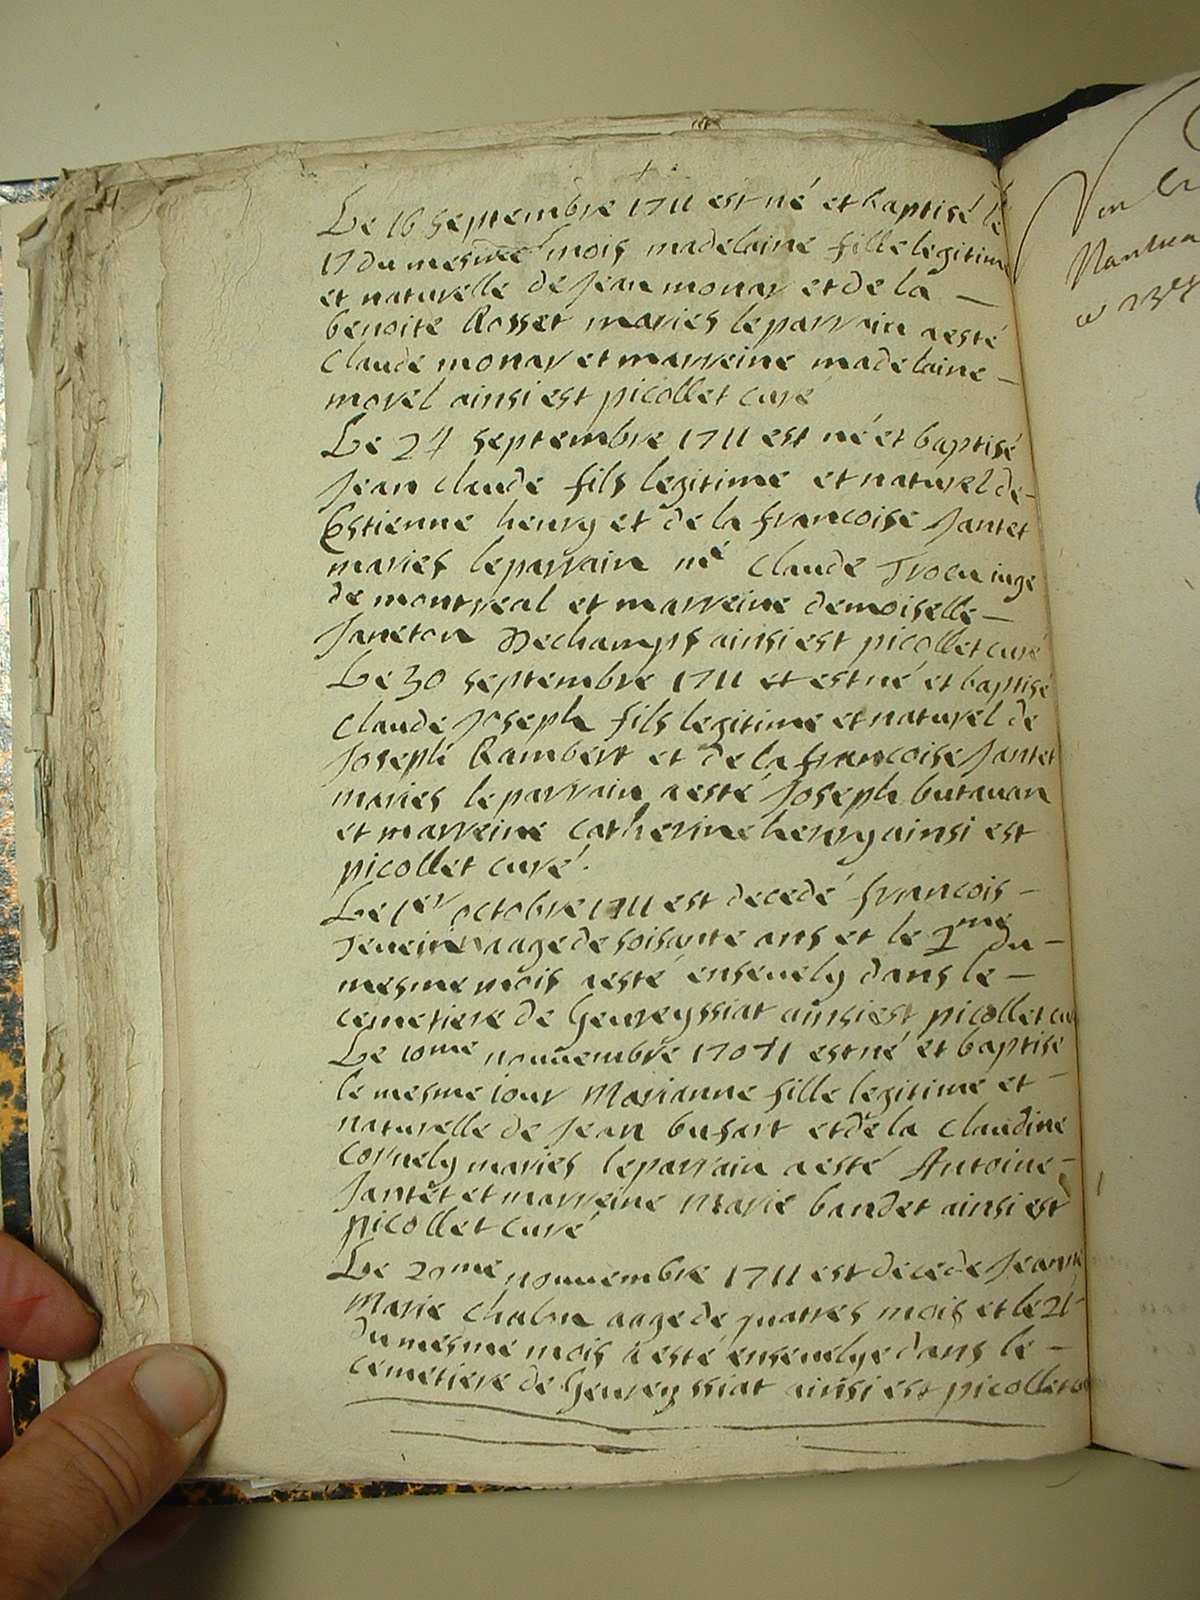 Le 16 septembre 1711 est né et baptisé le
17 du mesme mois madelaine fille legitime
et naturelle de Jean monay et de la —
benoite Rosset maries le parrain a esté
Claude monay et marreine madelaine —
morel ainsi est picollet curé
Le 24 septembre 1711 est né et baptisé
Jean claude fils legitime et naturel de-
Estienne henry et de la francoise Jantet
maries le parrain Claude Trocu iuge
de montreal et marreine demoiselle —
Janeton Dechamps ainsi est picollet curé
Le 30 septembre 1711 et est né et baptisé
Claude Joseph fils legitime et naturel de
Joseph Rambert et de la francoise Jantet
maries le parrain a esté Joseph butavan
et marreine Catherine henry ainsi est
picollet curé.
Le 1er octobre 1711 est decedé francois —
aage de soisante ans et le 2me du —
mesme mois a esté ensevely dans le —
cemetiere de Geureyssiat ainsi est picollet cu
Le 10me nouuembre 1711 est né et baptise
le mesme iour Marianne fille legitime et —
naturelle de Jean bufart et de la Claudine
Cornely maries le parrain a esté Antoine —
Jantet et marreine Marie baudet ainsi est
picollet curé
Le 20me nouuembre 1711 est decede Jeanne
Marie Chabu aage de quatres mois et le 21-
du mesme mois a esté ensevelye dans le —
cemetiere de Geureyssiat ainsi est picollet cu